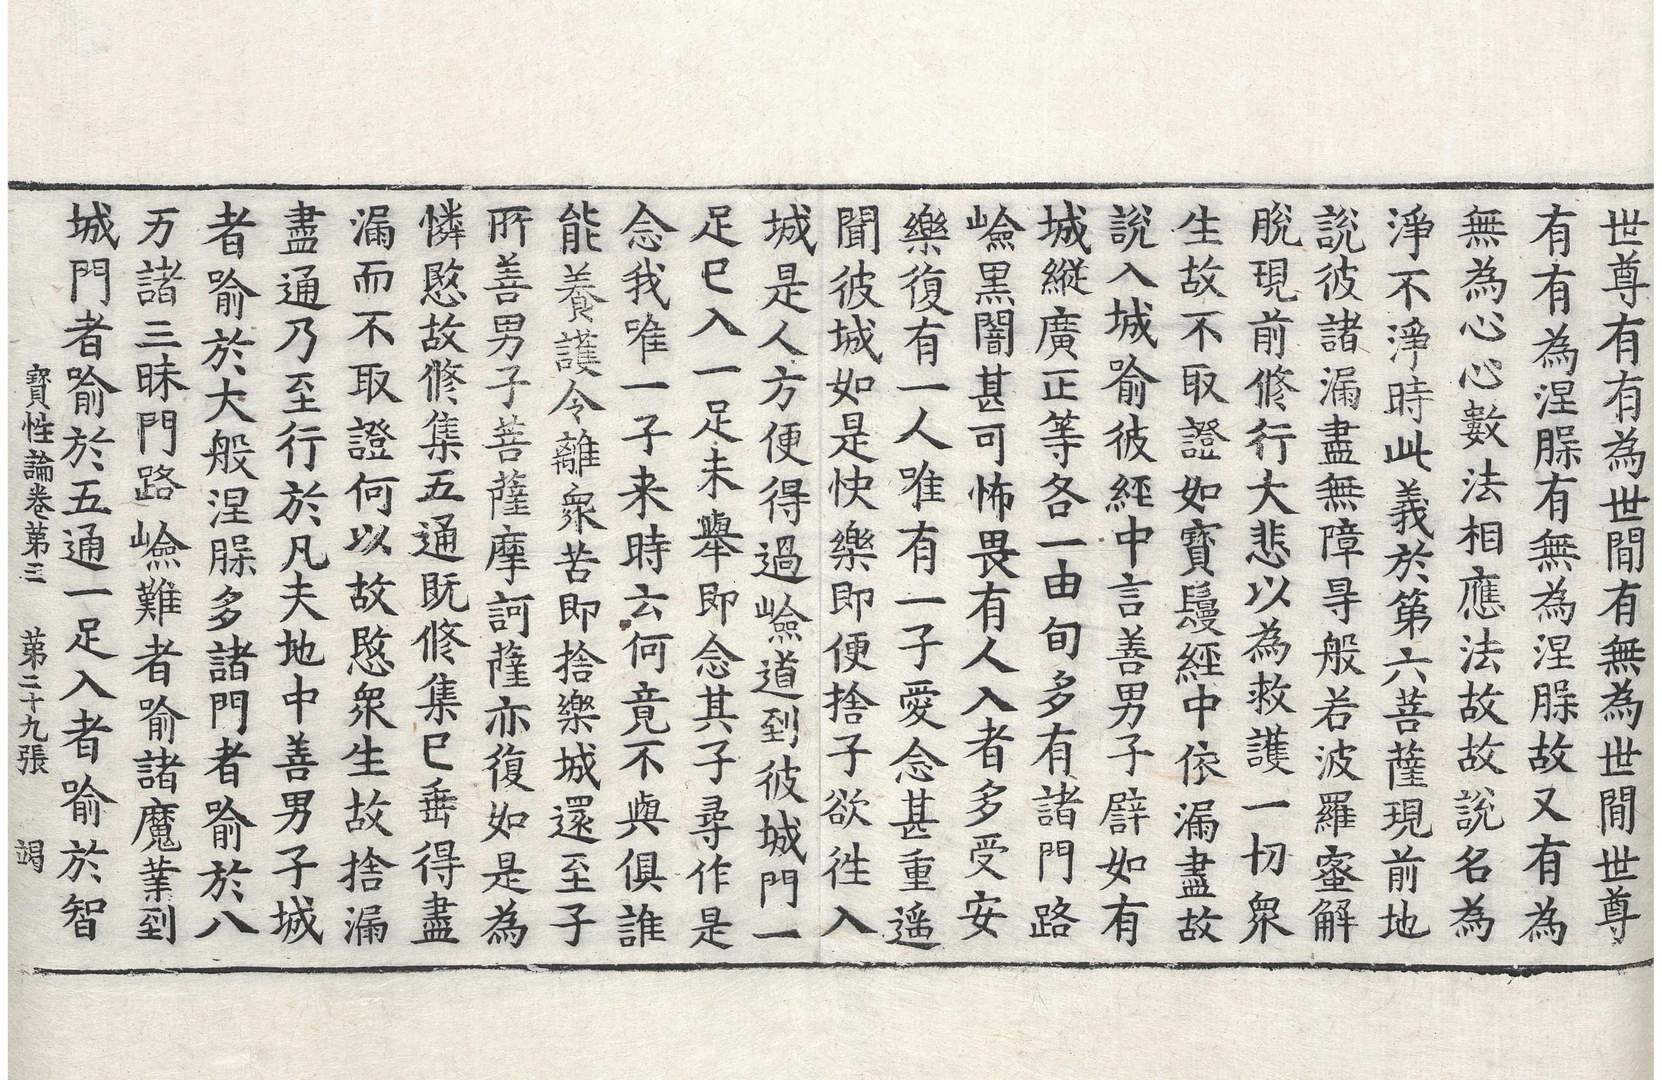 世尊有有為世間有無為世間世尊
有有為涅槃有無為涅槃故又有為
無為心心數法相應法故故說名為
淨不淨時此義於第六菩薩現前地
說彼諸漏盡無障㝵般若波羅蜜解
脫現前修行大悲以為救護一切衆
生故不取證如寶鬘經中依漏盡故
說入城喻彼經中言善男子譬如有
城縱廣正等各一由旬多有諸門路
嶮黑闇甚可怖畏有人入者多受安
樂復有一人唯有一子愛念甚重遥
聞彼城如是快樂即便捨子欲往入
城是人方便得過嶮道到彼城門一
足已入一足未舉即念其子尋作是
念我唯一子来時云何竟不與俱誰
能養護令離衆苦即捨樂城還至子
所善男子菩薩摩訶薩亦復如是為
憐愍故修集五通既修集已垂得盡
漏而不取證何以故愍衆生故捨漏
盡通乃至行於凡夫地中善男子城
者喻於大般涅槃多諸門者喻於八
万諸三昧門路嶮難者喻諸魔業到
城門者喻於五通一足入者喻於智
寶性論卷第三　第二十九張　竭